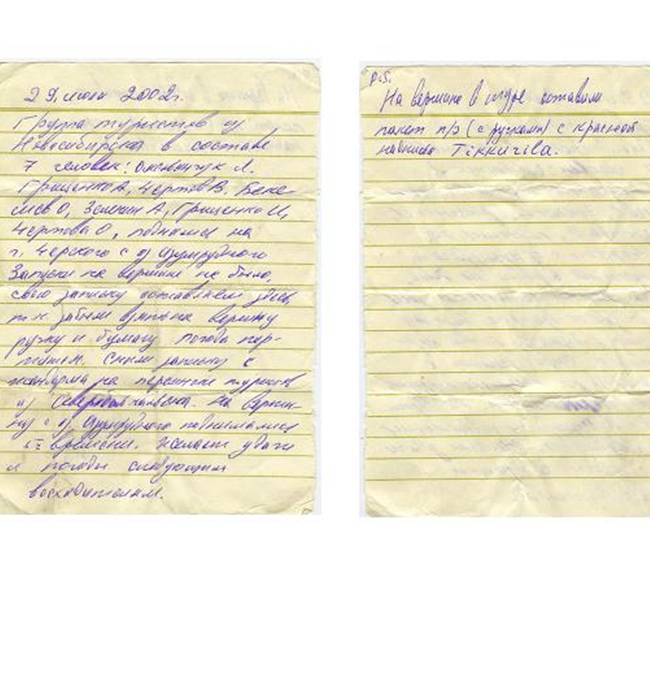 29 июля 2002г.
Группа туристов из
Новосибирска в составе
7 человек: Л.
Грищенко А, Чертов В. Беке-
шев О, Зеленин А, Грищенко И,
Чертова О, поднялись на
п. Черского с оз Изумрудного
Записки на вершине не было,
свою записку оставляем здесь
т.к. забыли взять на вершину
ручку и бумагу. Погода
Сняли записку с
жандарма на перемычке туристов
из Северобайкальска. На верши-
ну с оз Изумрудного поднимались
времени. Желаем удачи
и погоды следующим
восходителям.
P.S.
На вершине в туре оставили
пакет п/э (с ручками) с красной
надписью Tikkurila.